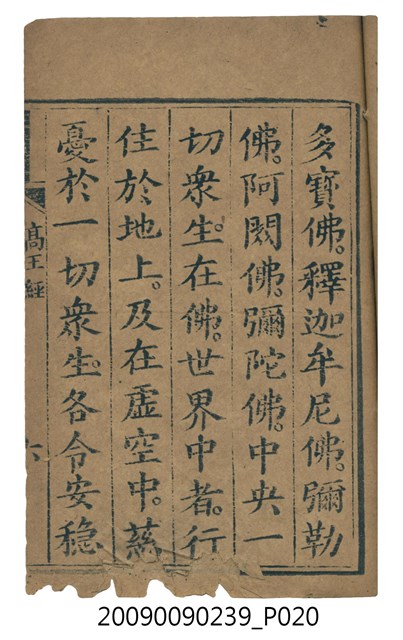 多寶佛。釋迦牟尼佛。彌勒
佛。阿閦佛。彌陀佛。中央一
切衆生。在佛。世界中者。行
住於地上。及在虛空中。慈
憂於一切衆生。各令安穩
高王經
六
20090090239_P020